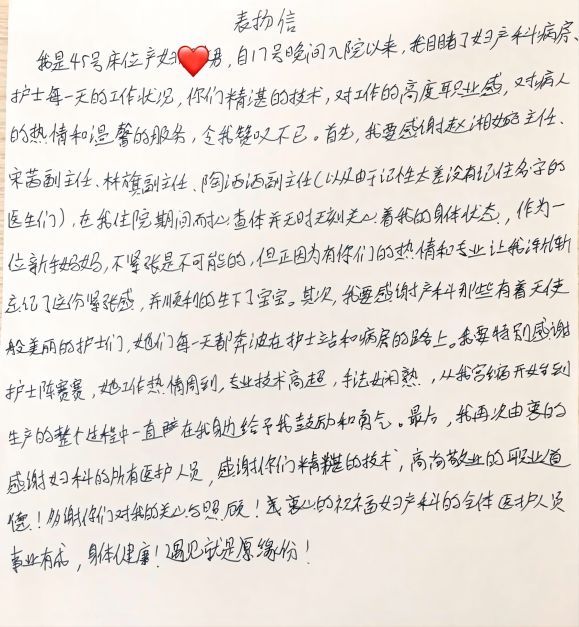 表扬信
我是45号床位产妇男，自17号晚间入院以来，我目睹了妇产科病房、
护士每一天的工作状况，你们精湛的技术，对工作的高度职业感，对病人
的热情和温馨的服务，令我赞叹不已。首先，我要感谢赵湘婉主任、
宋茜副主任、林旗副主任、陶洒洒副主任（以及由于记性太差没有记住名字的
医生们），在我住院期间耐心查体并无时无刻关心着我的身体状态，作为一
位新手妈妈，不紧张是不可能的，但正因为有你们的热情和专业让我渐渐
忘记了这份紧张感，并顺利的生下了宝宝。其次，我要感谢产科那些有着天使
般美丽的护士们，她们每一天都奔波在护士站和病房的路上。我要特别感谢
护士陈赛赛，她工作热情周到，专业技术高超，手法娴熟，从我宫缩开始到
生产的整个过程中一直陪在我身边给予我鼓励和勇气。最后，我再次由衷的
感谢妇科的所有医护人员，感谢你们精湛的技术，高尚敬业的职业道
德！多谢你们对我的关心与照顾！我衷心的祝福妇产科的全体医护人员
事业有成，身体健康！遇见就是原缘份！